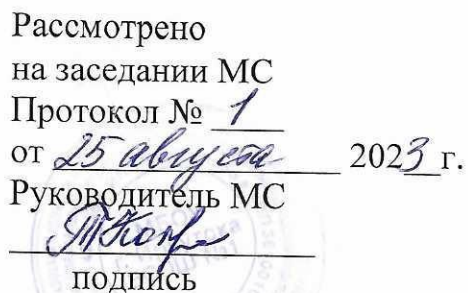 Рассмотрено
на заседании МС
Протокол № 1
от 25 августа 2023 г.
Руководитель МС
подпись